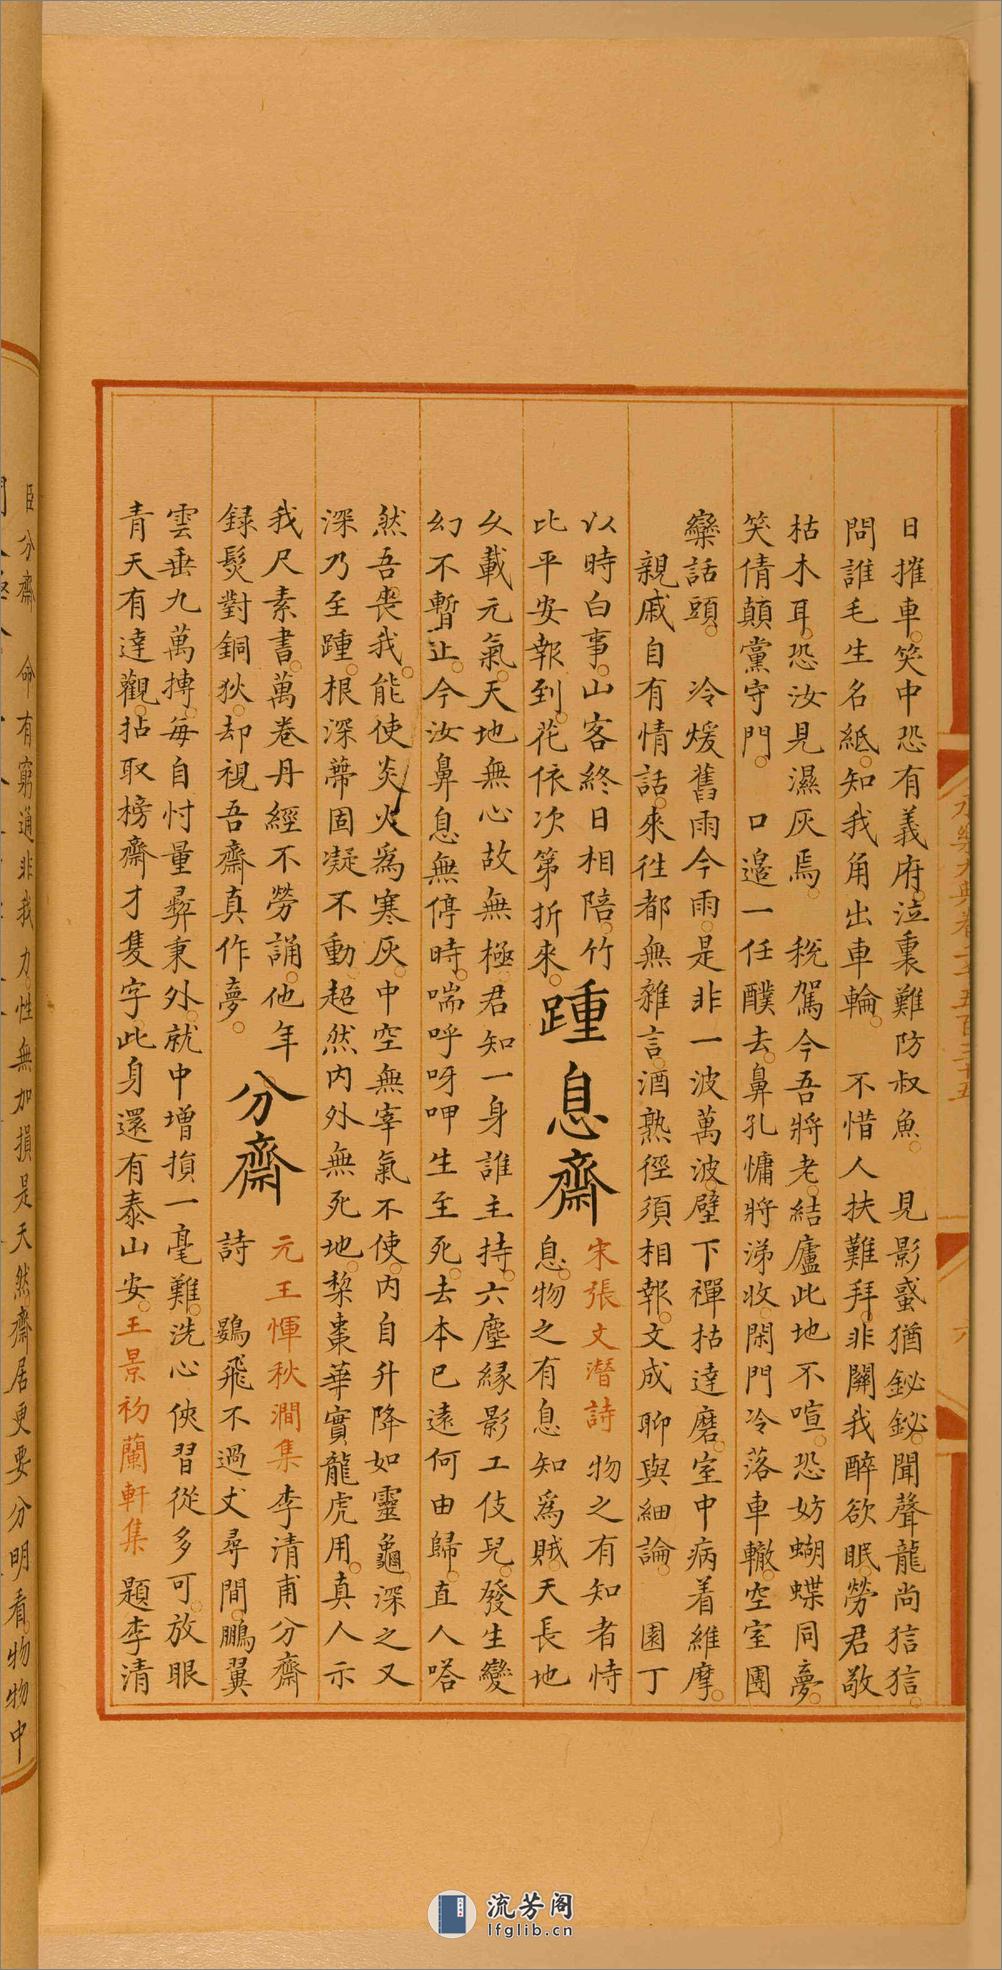 日摧車。笑中恐有義府。泣裏難防叔魚。 見影蜚猶鉍鉍。聞聲龍尚狺狺。
問誰毛生名紙。知我角出車輪。 不惜人扶難拜。非關我醉欲眠。勞君敬
枯木耳。恐汝見濕灰焉。 税駕今吾將老。結廬此地不喧。恐妨蝴蝶同夢。
笑倩顛黨守門。 口邉一任醭去。鼻孔慵將涕收。閑門冷落車轍。空室團
欒話頭。 冷煖舊雨今雨。是非一波萬波。壁下禪枯達磨。室中病着維摩。
親戚自有情話。來徃都無雜言。酒熟徑須相報。文成聊與細論。 園丁
以時白事。山客終日相陪。竹
比平安報到。花依次第折來。
踵息齋
宋張文潛詩 物之有知者恃
息。物之有息知爲賊。天長地
久載元氣。天地無心故無極。君知一身誰主持。六塵緣影工伎兒。發生變
幻不暫止。今汝鼻息無停時。喘呼呀呷生至死。去本已遠何由歸。直人嗒
然吾喪我。能使炎火爲寒灰。中空無宰氣不使。内自升降如靈龜。深之又
深乃至踵。根深蔕固凝不動。超然内外無死地。棃棗華實龍虎用。真人示
我尺素書。萬卷丹經不勞誦。他年
録髮對銅狄。却視吾齋真作夢。
分齋
元王惲秋澗集 李清甫分齋
詩 鷃飛不過丈尋間。鵬翼
雲垂九萬摶。每自忖量彛秉外。就中増損一毫難。洗心俠習從多可。放眼
青天有達觀。拈取榜齋才隻字。此身還有泰山安。王景初蘭軒集 題李清
臣分齋 命有窮通非我力。性無加損是天然。齋居更要分明看。物物中
永樂大典卷二千五百三十五
六
流芳阁
lfglib.cn